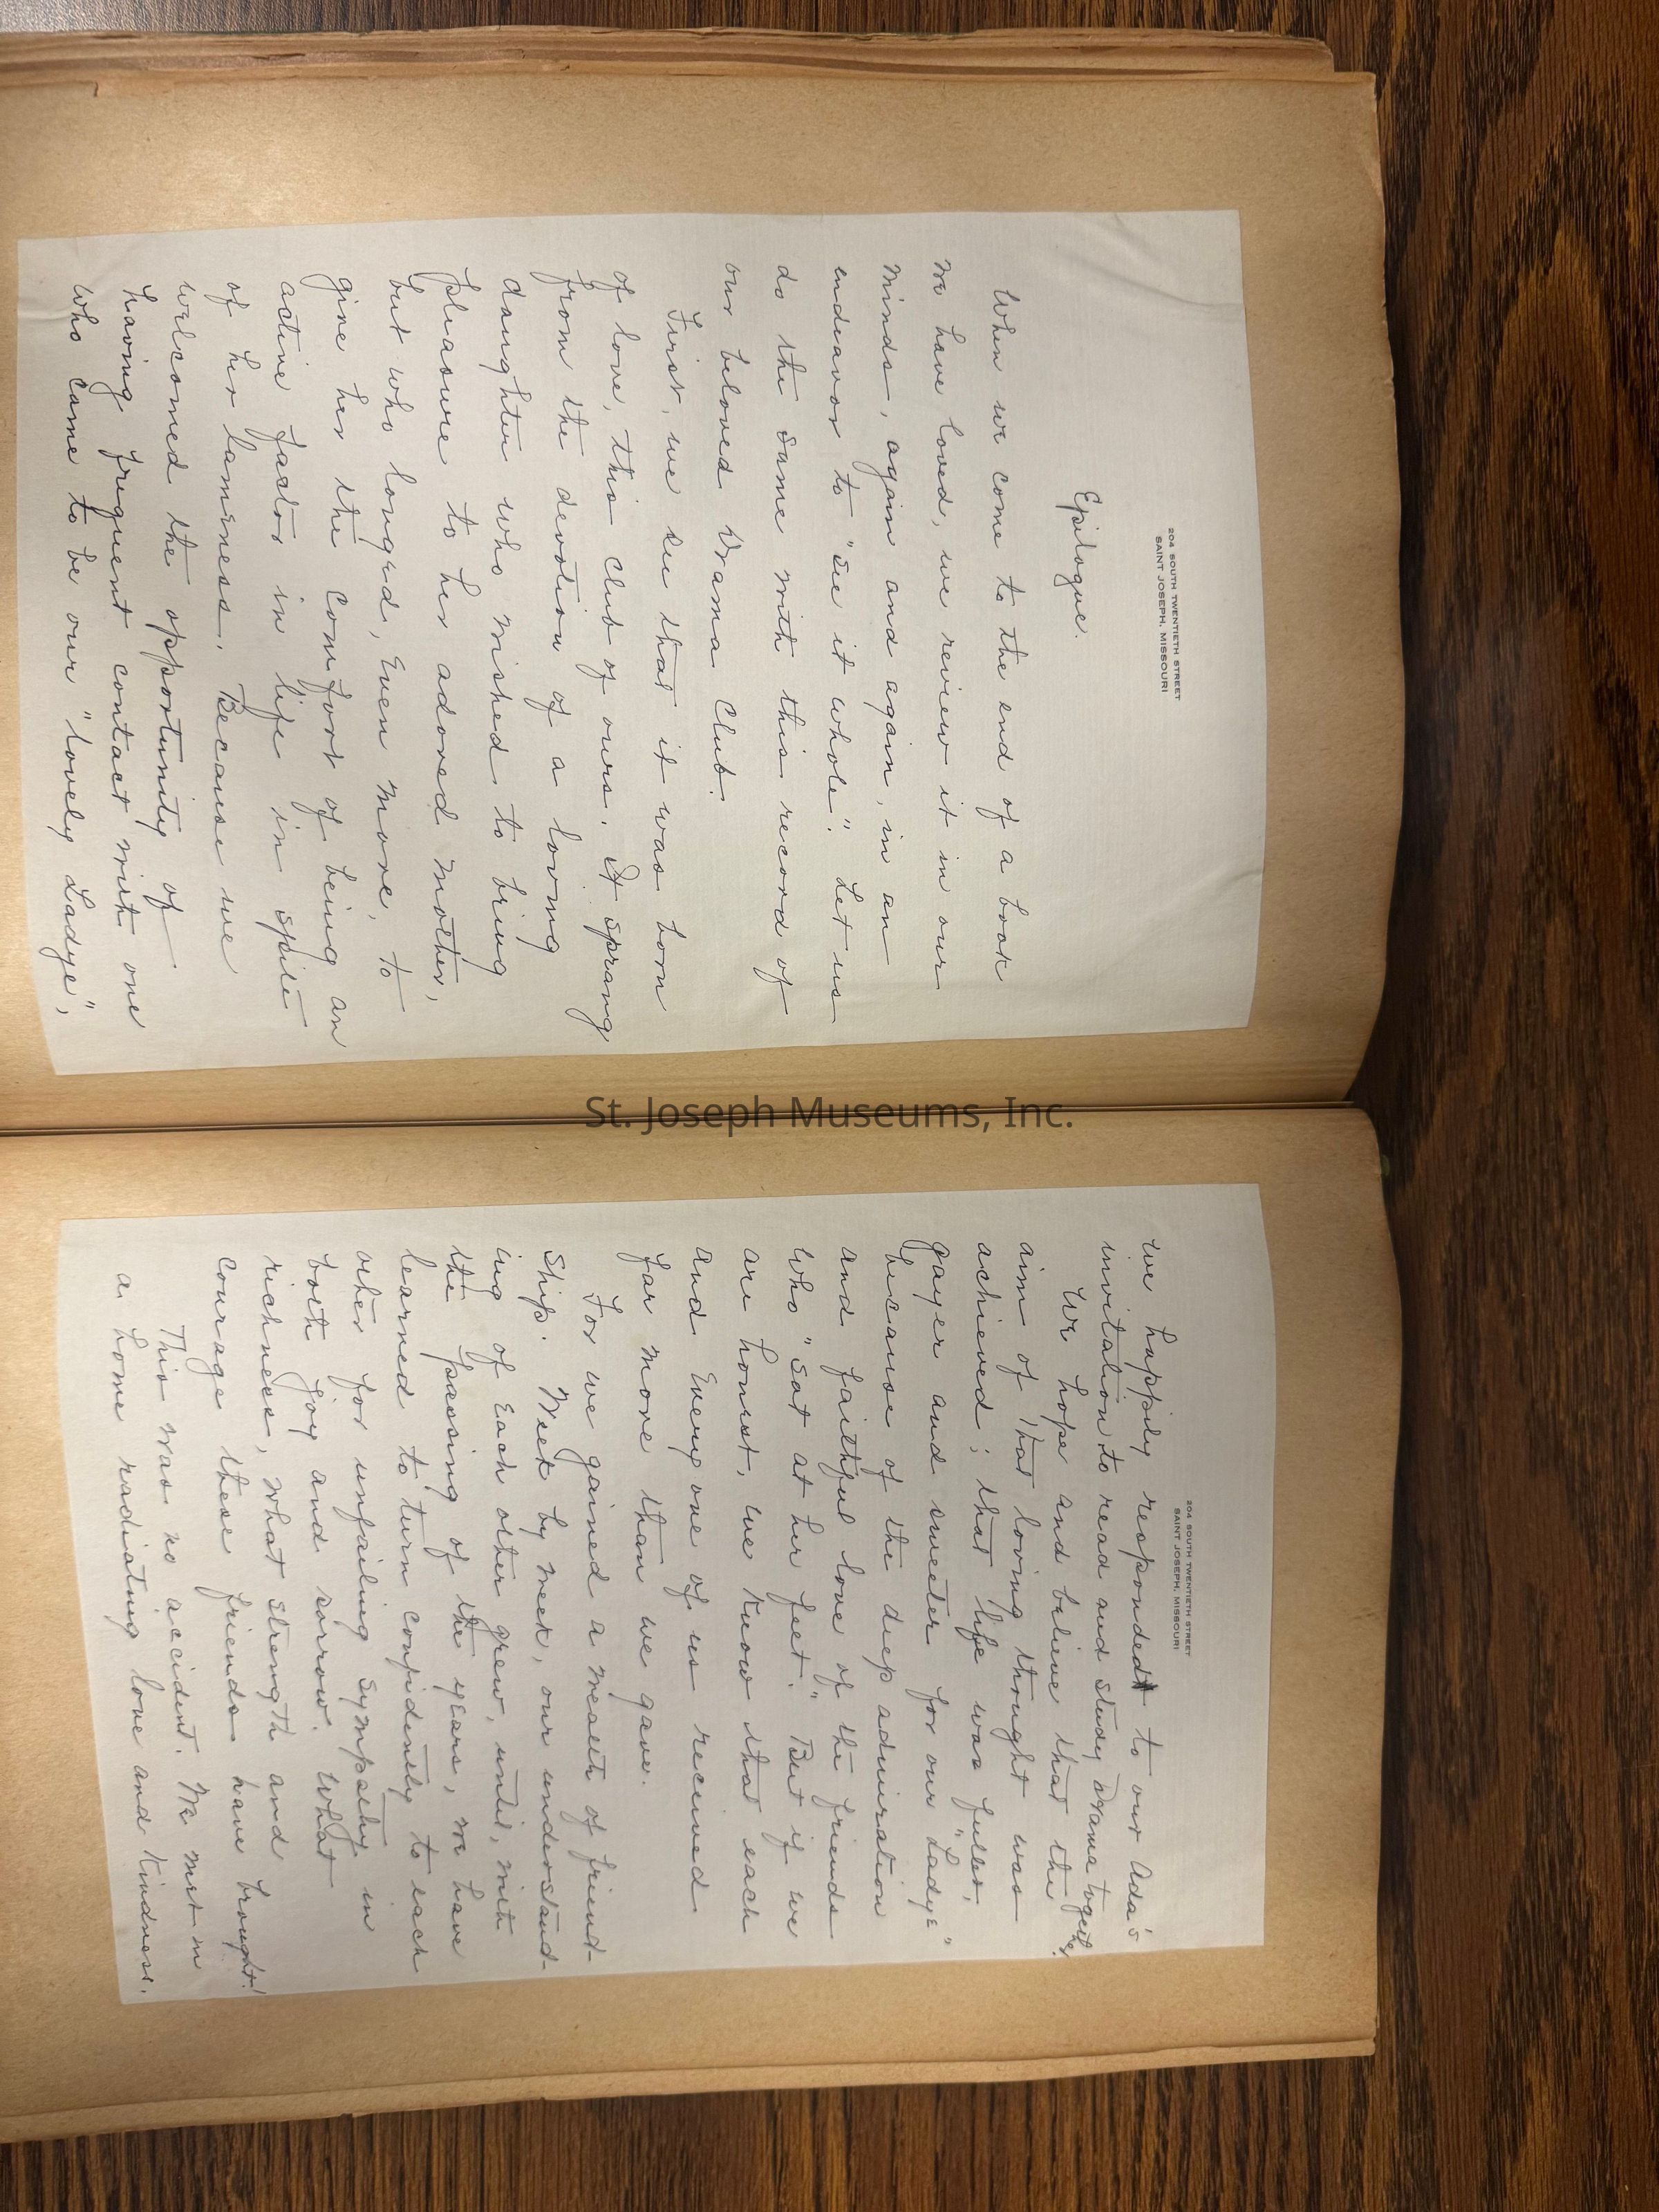 204 SOUTH TWENTIETH STREET
SAINT JOSEPH, MISSOURI
Epilogue.
When we come to the end of a book
we have loved, we review it in our
minds, again and again, in an
endeavor to "see it whole". Let us
do the same with this record of
our beloved Drama Club.
First, we see that it was born
of love, this club of ours. It sprang
from the devotion of a loving
daughter who wished to bring
pleasure to her adored mother,
but who longed, even more, to
give her the comfort of being an
active factor in life in spite
of her lameness. Because we
welcomed the opportunity of
having frequent contact with one
who came to be our "lovely Ladye",
204 SOUTH TWENTIETH STREET
SAINT JOSEPH, MISSOURI
we happily responded to our Ada's
invitation to read and study drama together.
We hope and believe that the
aim of that loving thought was
achieved; that life was fuller,
gayer and sweeter for our "Ladye"
because of the deep admiration
and faithful love of the friends
who "sat at her feet." But if we
are honest, we know that each
and every one of us received
far more than we gave.
For we gained a wealth of friend-
ship. Week by week, our understand-
ing of each other grew, until, with
the passing of the years, we have
learned to turn confidently to each
other for unfailing sympathy in
both joy and sorrow. What
richness, what strength and
courage these friends have brought!
This was no accident. We met in
a home radiating love and kindness,
St. Joseph Museums, Inc.